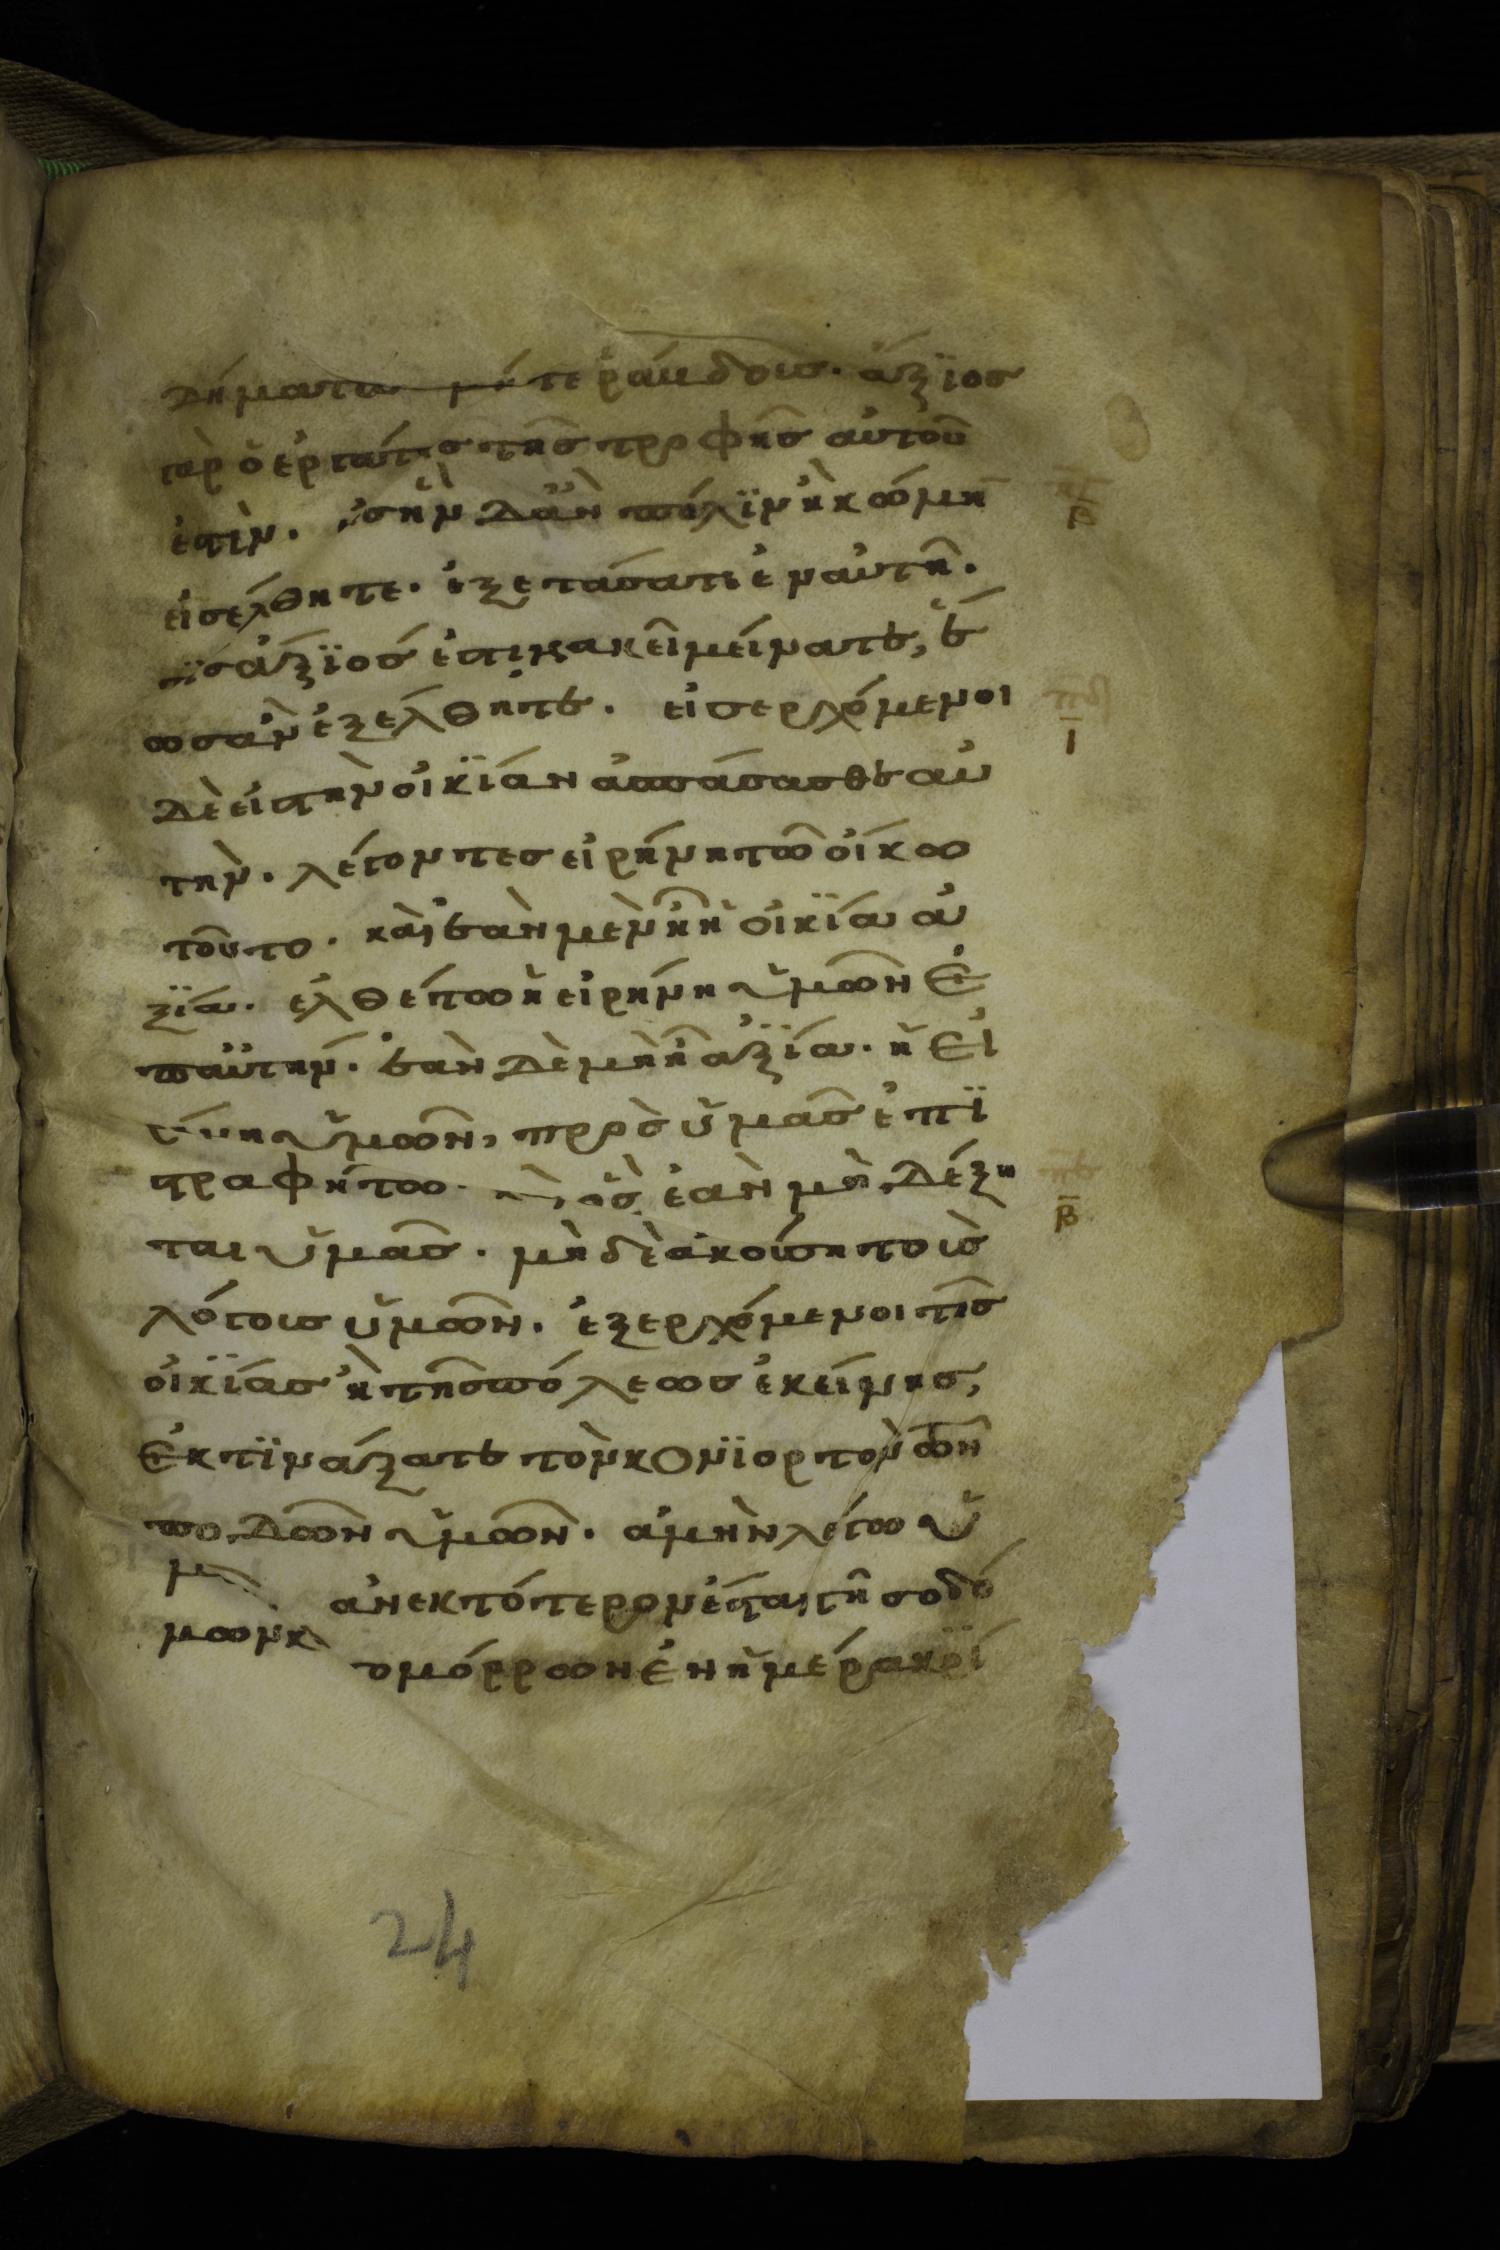 δήματα μήτε ράβδους· ἄξϊος
γὰρ ὁ ἐργάτης τῆς τροφῆς αὐτοῦ
ἐστὶν. εἰς ἣν δἂν πόλϊν ἢ κώμην
εἰσέλθητε. ἐξετάσατε ἐν αὐτῆ.
τίς ἄξϊός ἐστι κακεῖ μείνατε, ἕ
ως ἂν ἐξέλθητε. εἰσερχόμενοι
δὲ εἰς τὴν οἰκϊάν ἀσπάσασθε αὐ
τὴν. λέγοντες εἰρήνη τῶ οἴκω
τούτο. καὶ ἐὰν μὲν ἦ ἡ οἰκϊία ἀ
ξϊία. ἐλθέτω ἡ εἰρήνη ὑμῶν ἐ
π αὐτήν. ἐὰν δὲ μὴ ἦ ἀξϊία. ἡ εἰ
ρήνη ὑμῶν, πρὸς ὑμᾶς ἐπϊ
στραφήτω. καὶ ὃς ἐὰν μὴ δέξη
ται ὑμᾶς. μηδὲ ἀκούση τοὺς
λόγους ὑμῶν. ἐξερχόμενοι τῆς
οἰκϊίας ἢ τῆς πόλεως ἐκείνης,
ἐκτϊνάξατε τὸν κονϊορτὸν τῶν
ποδῶν ὑμῶν. ἀμὴν λέγω ὑ
μῖν ἀνεκτότερον ἔσται γῆ σοδό
μων κ γομόρρων ἐν ἡμέρα κρϊί
β
πδ
ι
πε
β
24